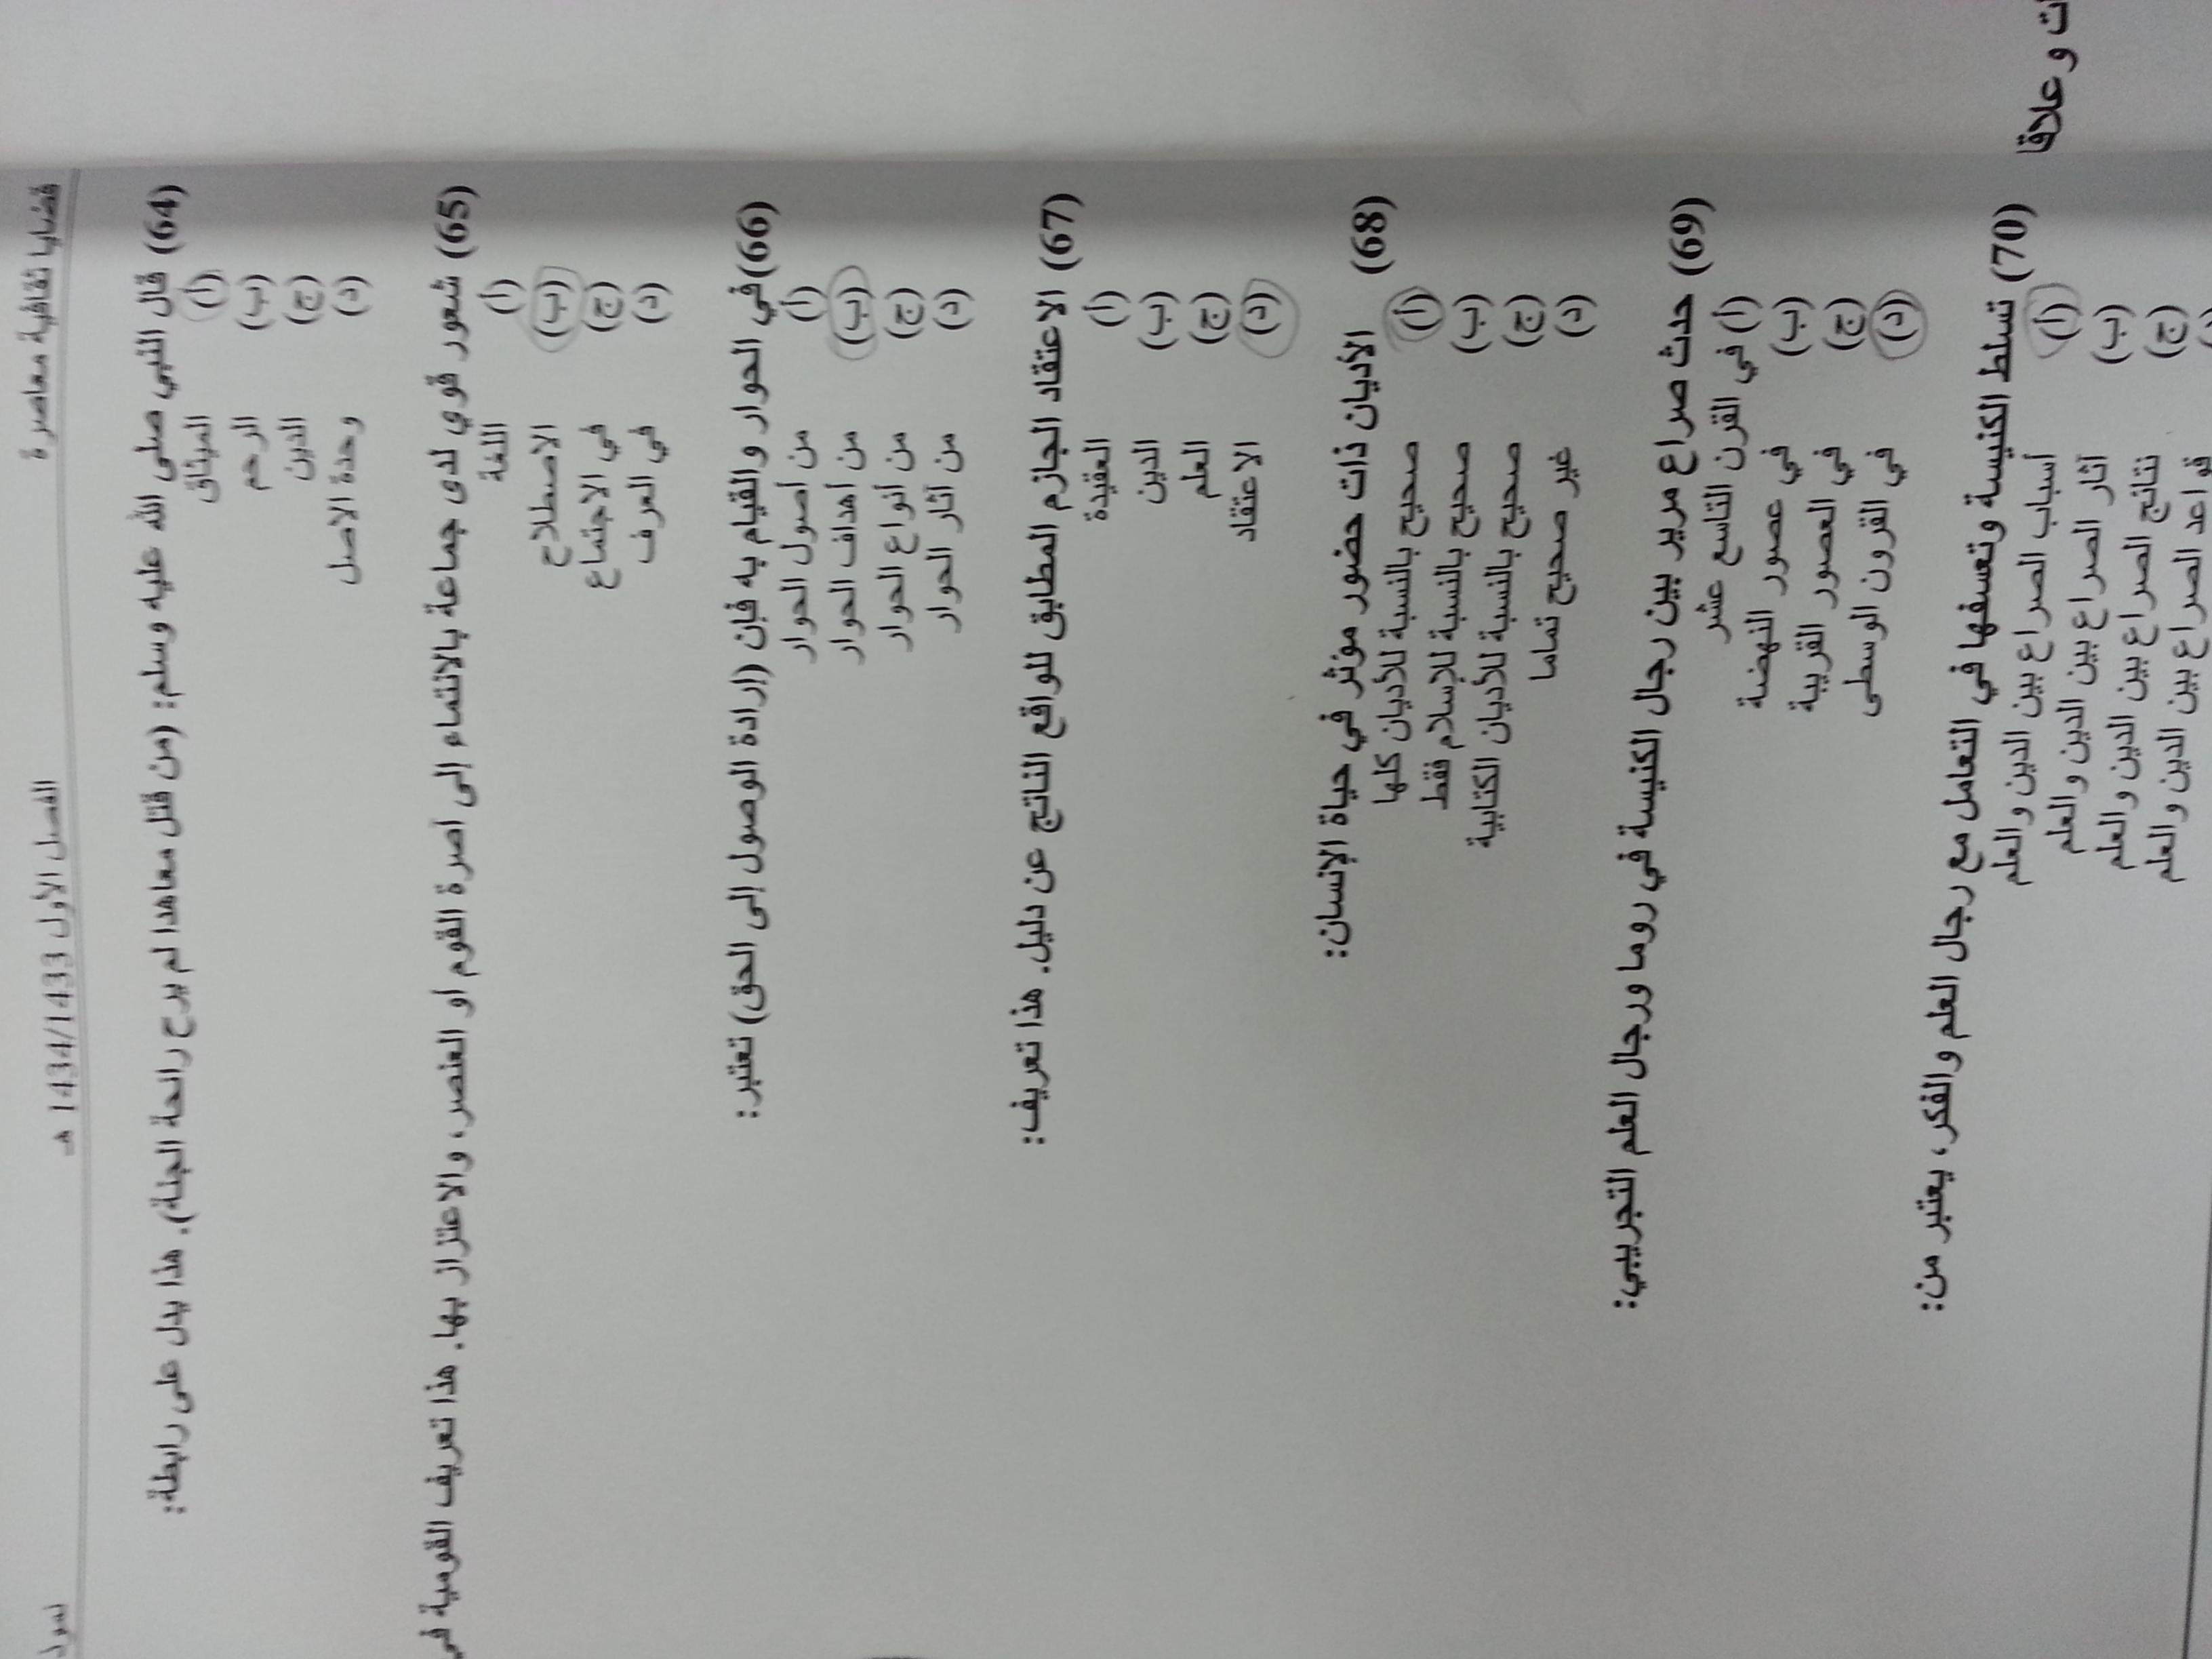 قضايا ثقافية معاصرة الفصل الأول 1434/1433 هـ
(64) قال النبي صلى الله عليه وسلم: (من قتل معاهدا لم يرح رائحة الجنة). هذا يدل على رابطة:
(أ) الميثاق
(ب) الرحم
(ج) الدين
(د) وحدة الاصل
(65) شعور قوي لدى جماعة بالانتماء إلى آصرة القوم أو العنصر، والاعتزاز بها. هذا تعريف القومية في
(أ) اللغة
(ب) الاصطلاح
(ج) في الاجتماع
(د) في العرف
(66) في الحوار والقيام به فإن (إرادة الوصول إلى الحق) تعتبر:
(أ) من أصول الحوار
(ب) من أهداف الحوار
(ج) من أنواع الحوار
(د) من آثار الحوار
(67) الاعتقاد الجازم المطابق للواقع الناتج عن دليل. هذا تعريف:
(أ) العقيدة
(ب) الدين
(ج) العلم
(د) الاعتقاد
(68) الأديان ذات حضور مؤثر في حياة الإنسان:
(أ) صحيح بالنسبة للأديان كلها
(ب) صحيح بالنسبة للإسلام فقط
(ج) صحيح بالنسبة للأديان الكتابية
(د) غير صحيح تماما
(69) حدث صراع مرير بين رجال الكنيسة في روما ورجال العلم التجريبي:
(أ) في القرن التاسع عشر
(ب) في عصور النهضة
(ج) في العصور القريبة
(د) في القرون الوسطى
(70) تسلط الكنيسة وتعسفها في التعامل مع رجال العلم والفكر، يعتبر من:
(أ) أسباب الصراع بين الدين والعلم
(ب) آثار الصراع بين الدين والعلم
(ج) نتائج الصراع بين الدين والعلم
قواعد الصراع بين الدين والعلم
وعلاقا